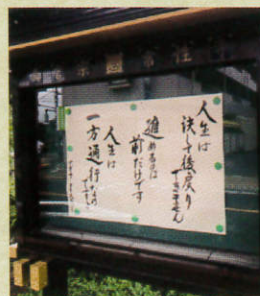 人生は
決して後戻り
できません
進めるのは
前だけです
人生は
一方通行なの
ですから